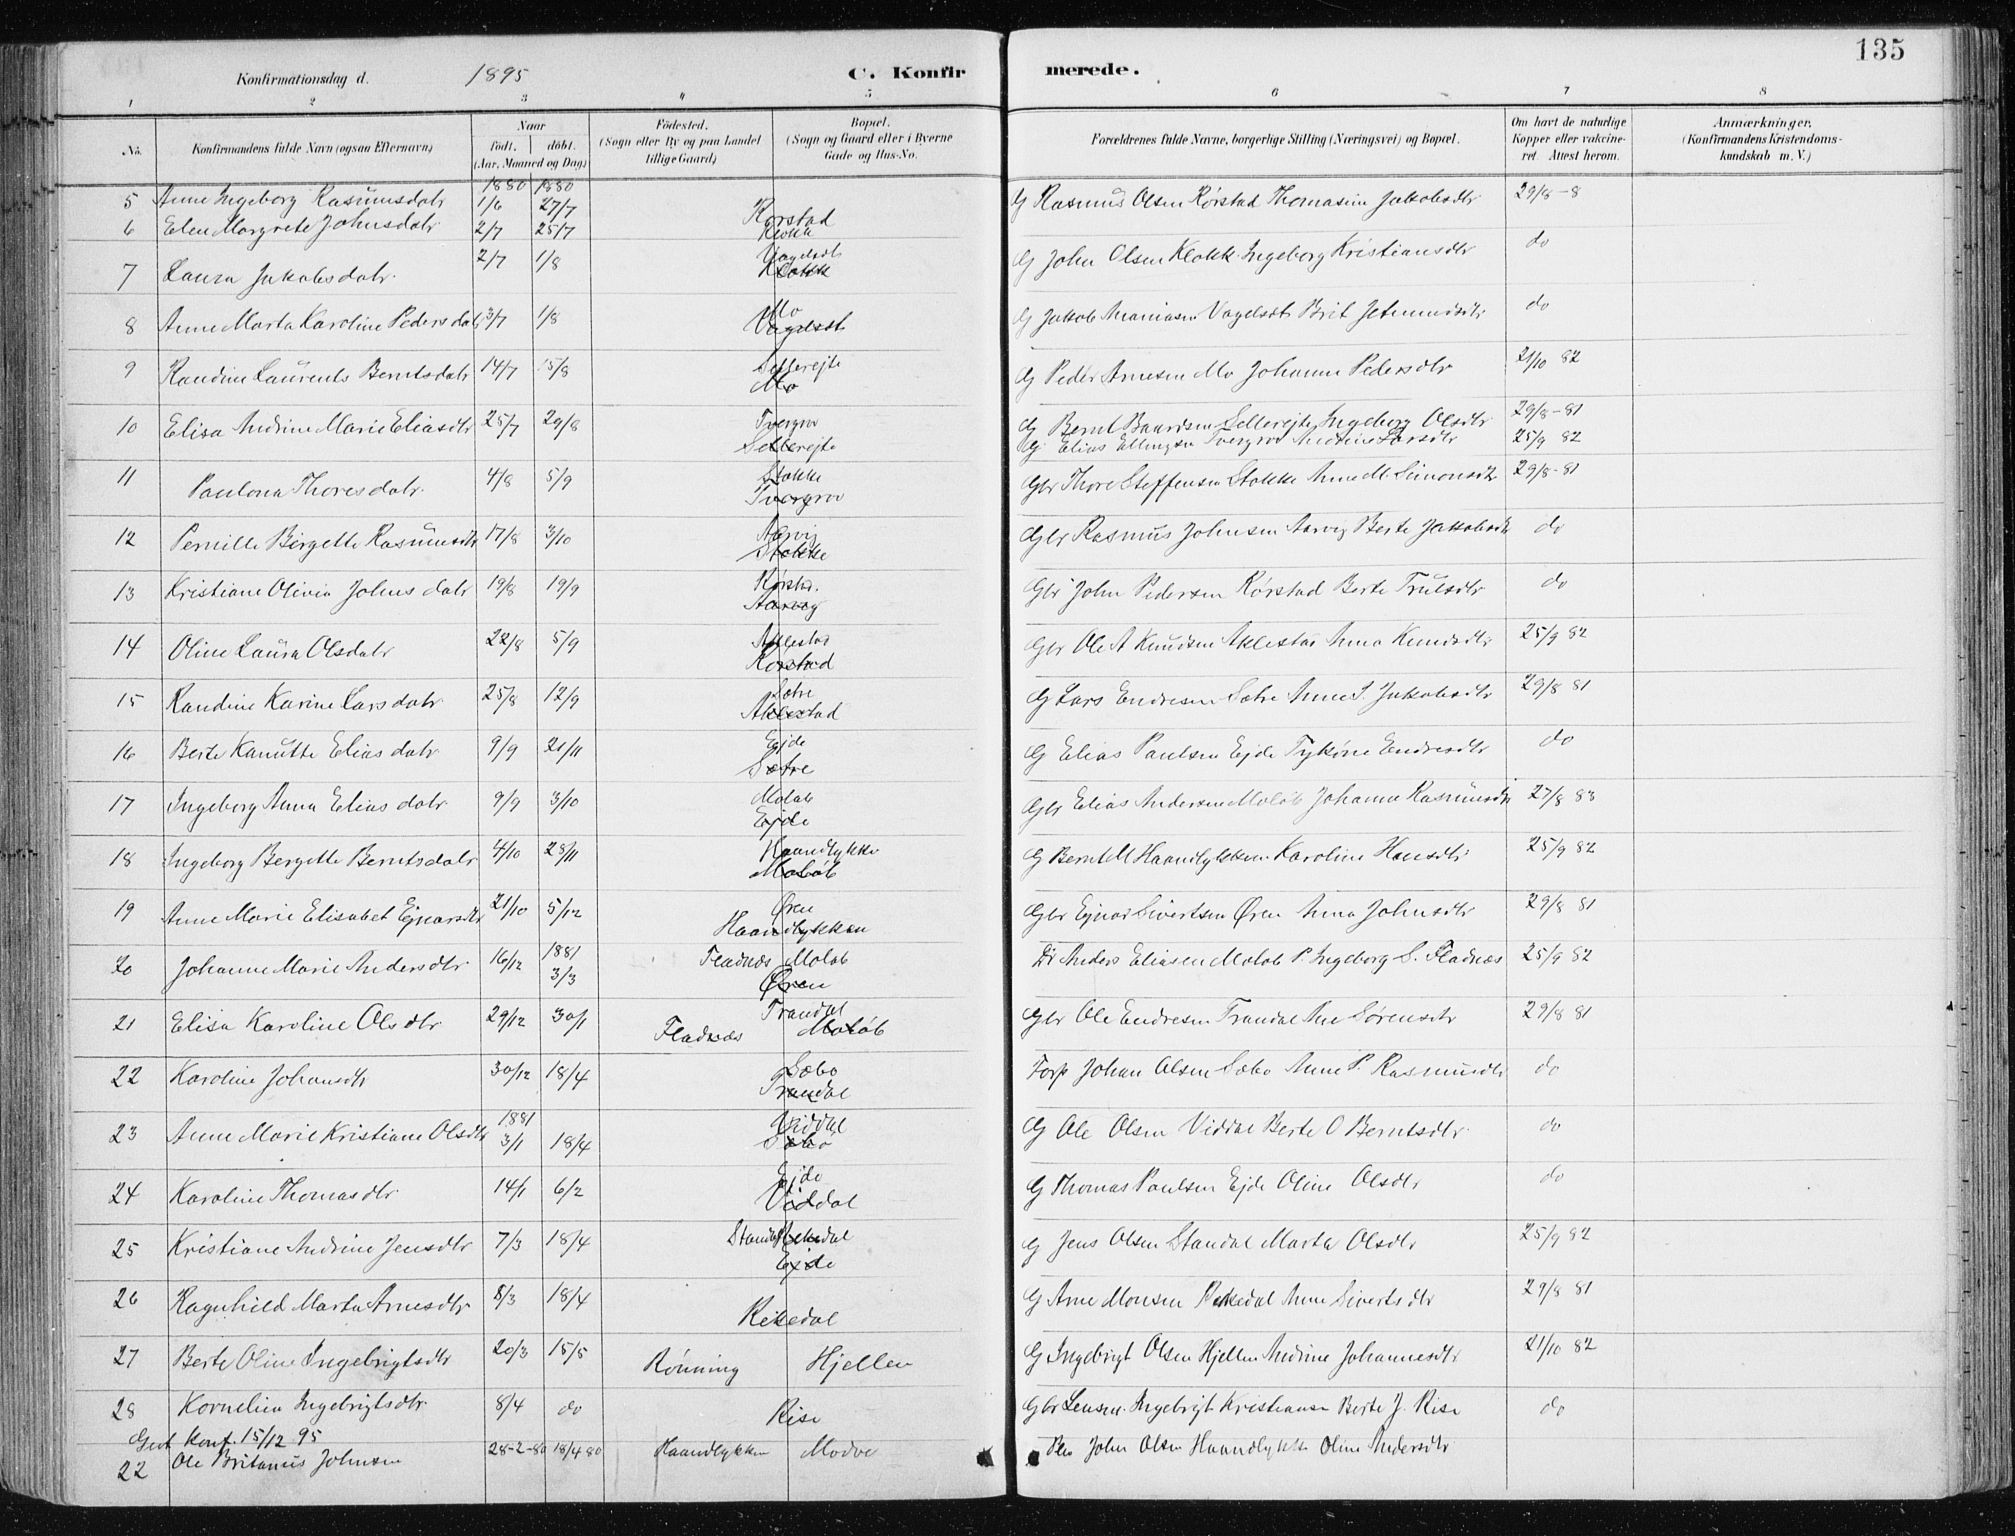 135
Konfirmationsdag d. 1895 C. Konfir merede.
1 2 3 4 5 6 7 8
No. Konfirmandens fulde Navn (ogsaa Efternavn) Naar født. døbt. (Aar, Maaned og Dag) Fødested. (Sogn eller By og paa Landet tillige Gaard) Bopæl. (Sogn og Gaard eller i Byerne Gade og Hus-No. Forældrenes fulde Navne, borgerlige Stilling (Næringsvei) og Bopæl. Om havt de naturlige Kopper eller vakcineret. Attest herom. Anmærkninger. (Konfirmandens Kristendomskundskab m. V.)
1880 1880
5 Anne Ingeborg Rasmusdatr 1/6 27/7 Rørstad G Rasmus Olsen Rørstad Thomasine Jakobsdtr 29/8-8
6 Elen Margrete Johnsdatr 2/7 25/7 Klokk G John Olsen Klokk Ingeborg Kristiansdtr do
7 Laura Jakobsdatr 2/7 1/8 Vagelsdt Klokk G Jakob Ananiasen Vagelsdt Brit Jetmundsdtr do
8 Anne Marta Karoline Pedersdatr 3/7 1/8 Mo Vagelsdt G Peder Arnesen Mo Johanne Pedersdtr 21/10 82
9 Randine Laurents Berntsdatr 14/7 15/8 Sellerejte Mo G Bernt Baardsen Sellerejte Ingeborg Olsdtr 29/8-81
10 Elisa Andrine Marie Eliasdtr 25/7 29/8 Tvergrov Sellerejte G Elias Ellingsen Tvergrov Andrine Larsdtr 25/9 82
11 Paulona Thoresdatr 4/8 5/9 Stokke Tvergrov Gbr Thore Steffensen Stokke Anne M. Simonsdtr 29/8-81
12 Pernille Birgette Rasmusdtr 17/8 3/10 Aarvig Stokke Gbr Rasmus Johnsen Aarvig Berte Jakobsdtr do
13 Kristiane Olivia Johnsdatr 19/8 19/9 Rørstd. Aarvig Gbr John Pedersen Rørstad Berte Trulsdtr do
14 Oline Laura Olsdatr 22/8 5/9 Aklestad Rørstad Gbr Ole A Knudsen Aklestad Anna Knudsdtr 25/9 82
15 Randine Karine Larsdatr 25/8 12/9 Sætre Aklestad G Lars Endresen Sætre Anne S. Jakobsdtr 29/8 81
16 Berte Kanutte Eliasdatr 9/9 21/11 Ejde Sætre G Elias Paulsen Ejde Endresdtr do
17 Ingeborg Anna Eliasdatr 9/9 3/10 Moløb Ejde Gbr Elias Andersen Moløb Johanne Rasmusdtr 27/8 83
18 Ingeborg Bergette Berntsdatr 4/10 28/11 Haandlykke Moløb G Bernt M Haandlykken Karoline Hansdtr 25/9 82
19 Anne Marie Elisabet Ejnarsdtr 21/10 5/12 Øren Haandlykken Gbr Ejnar Sivertsen Øren Anna Johnsdtr 29/8 81
20 Johanne Marie Andersdtr 16/12 1881 3/3 Fladnæs Moløb Øren Anders Eliasen Moløb P. Ingeborg S. Fladnæs 25/9 82
21 Elisa Karoline Olsdtr 29/12 30/1 Trandal Fladnæs Moløb Gbr Ole Endresen Trandal Ane Sørensdtr 29/8 81
22 Karoline Johansdtr 30/12 18/4 Sæbø Trandal Forp Johan Olsen Sæbø Anne P. Rasmusdtr do
23 Anne Marie Kristiane Olsdtr 1881 3/1 18/4 Viddal Sæbø G Ole Olsen Viddal Berte O Berntsdtr do
24 Karoline Thomasdtr 14/1 6/2 Ejde Viddal G Thomas Paulsen Ejde Oline Olsdtr do
25 Kristiane Andrine Jensdtr 7/3 18/4 Standal Ejde G Jens Olsen Standal Marta Olsdtr 25/9 82
26 Ragnhild Marta Arnesdtr 8/3 18/4 Rekedal G Arne Monsen Rekedal Anne Sivertsdtr 29/8 81
27 Berte Oline Ingebrigtsdtr 20/3 15/5 Rønning Hjellen G Ingebrigt Olsen Hjellen Andrine Johannesdtr 21/10 82
28 Kornelia Ingebrigtsdtr 8/4 do Rise Gbr Lensm. Ingebrigt Kristiansen Berte J. Rise do
Gut konf. 15/12 95
22 Ole Britanus Johnsen 28-2-80 18/4 80 Haandlykken Modve John Olsen Haandlykke Oline Andersdtr